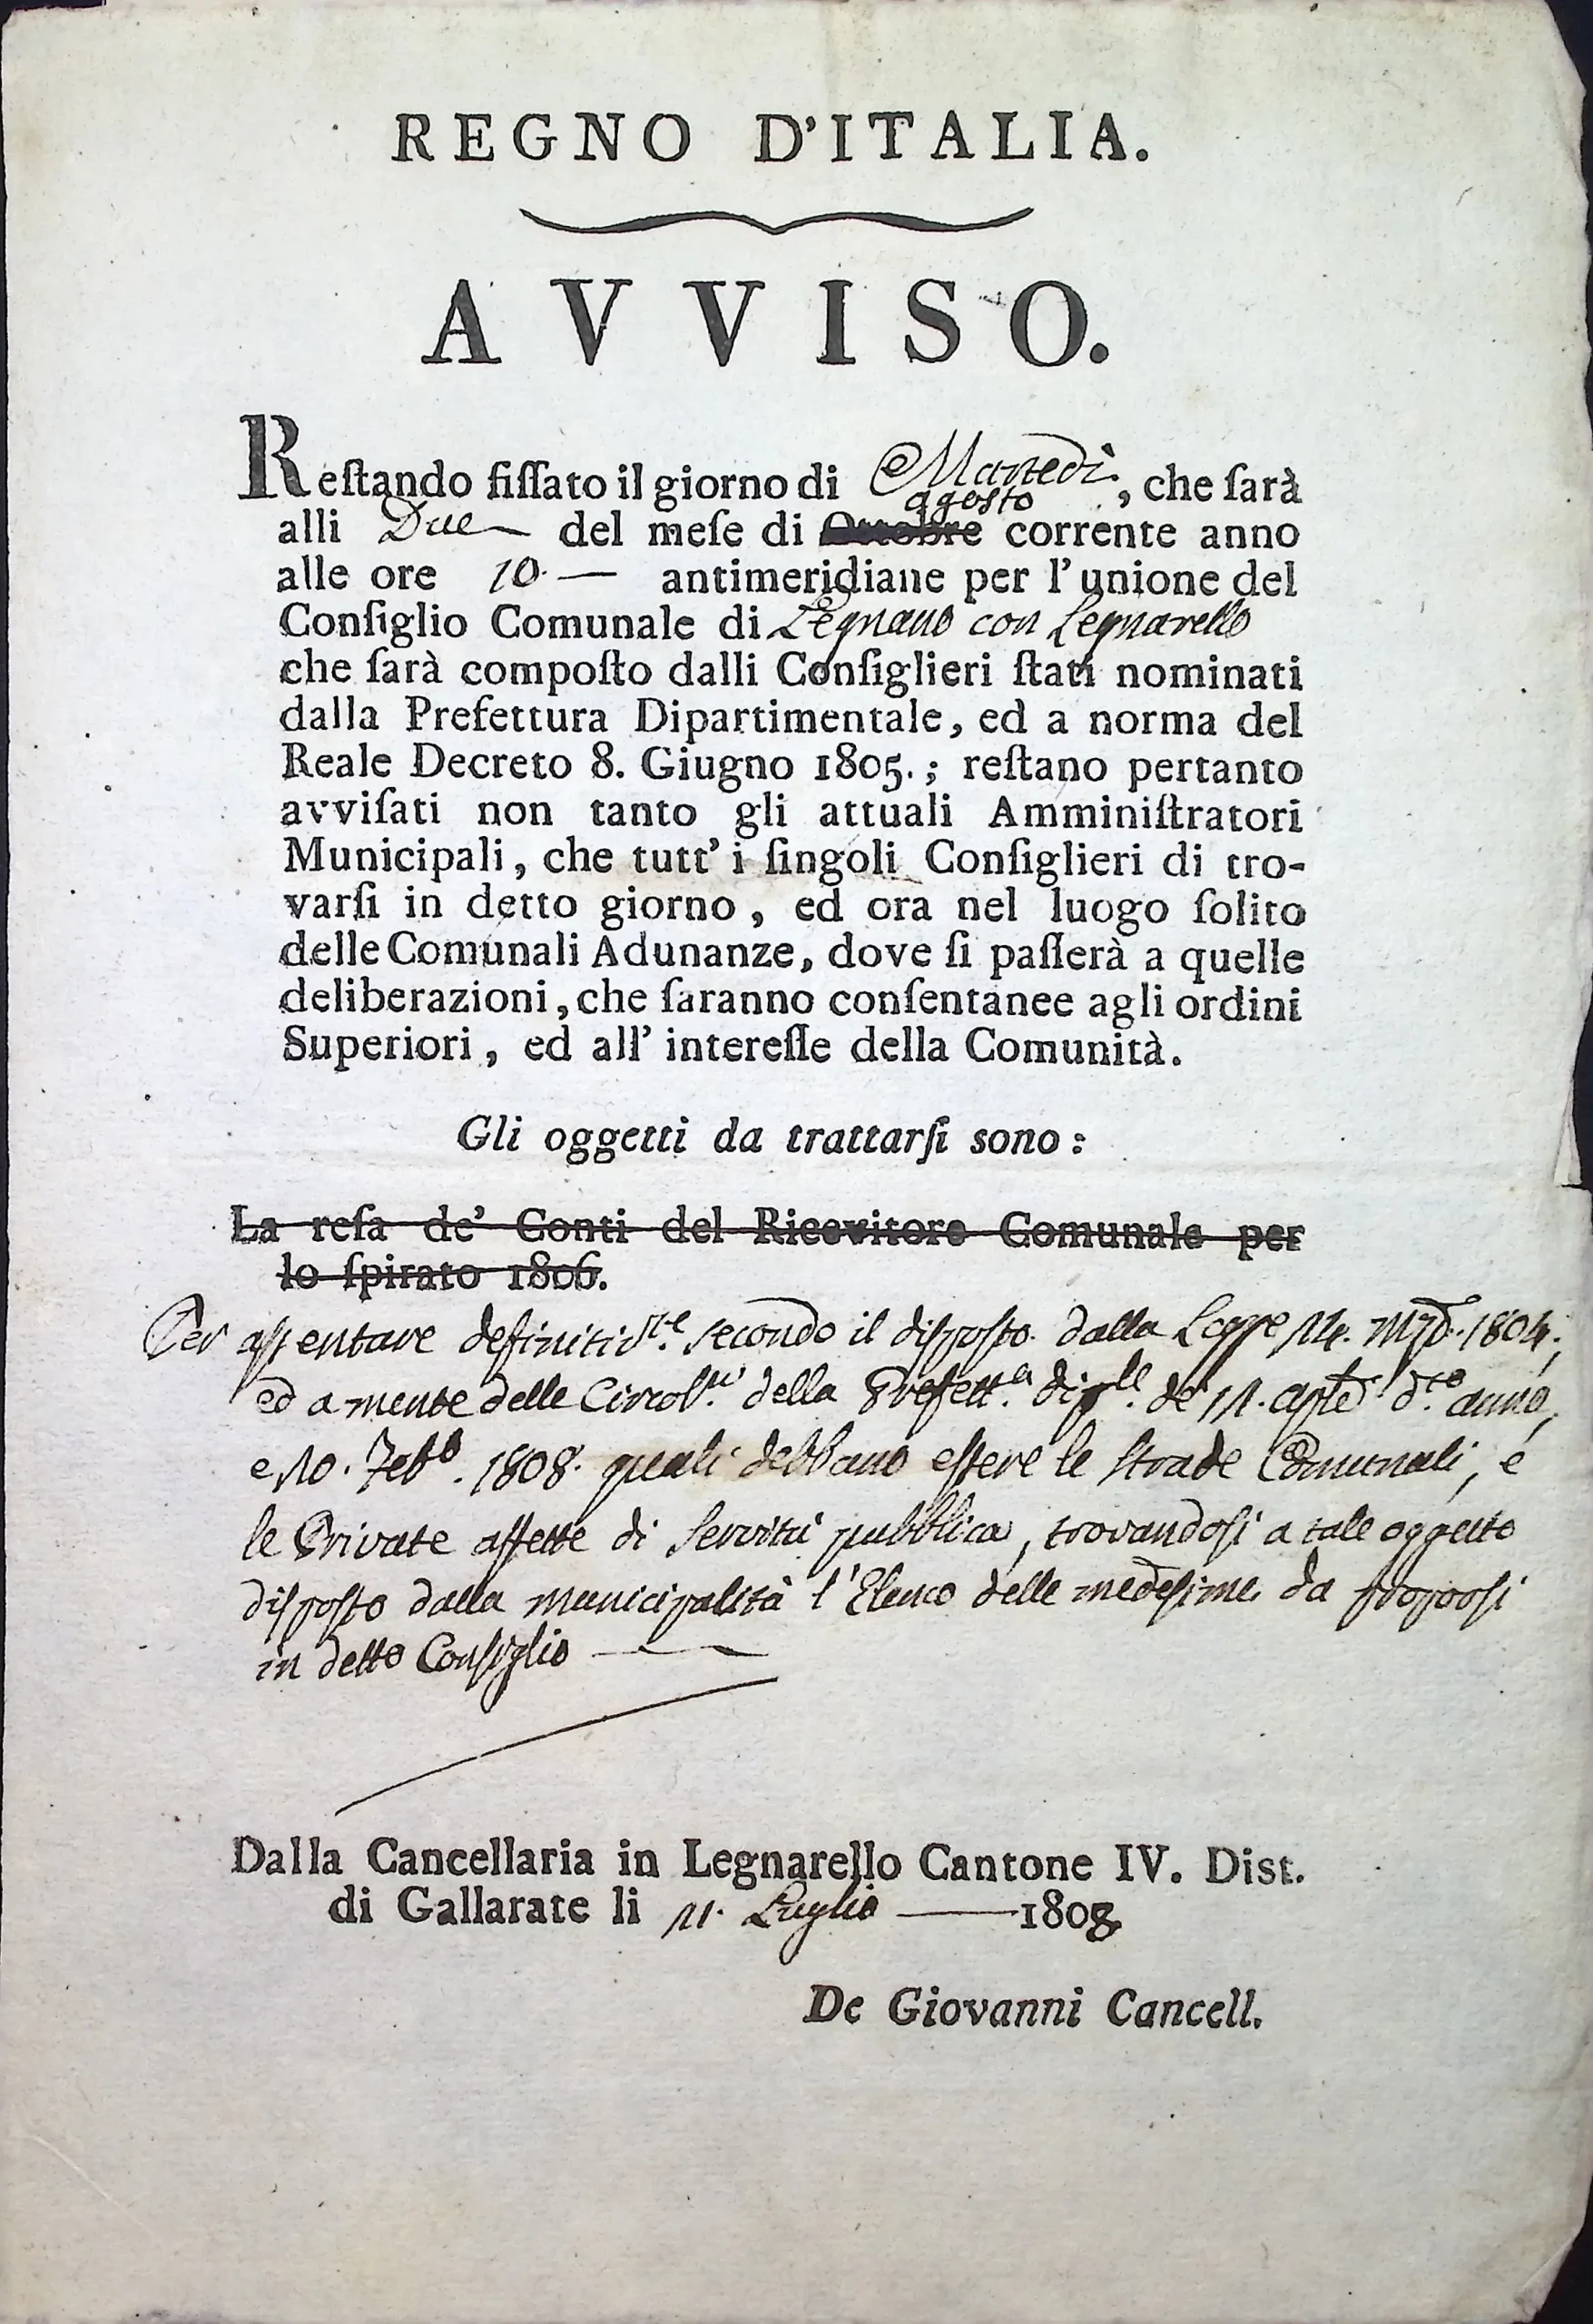 REGNO D'ITALIA.
AVVISO.
Reſtando fiſſato il giorno di Martedì, che ſarà
agosto
alli Due del meſe di Ottobre corrente anno
alle ore 10. — antimeridiane per l' unione del
Conſiglio Comunale di Legnano con Legnarello
che ſarà compoſto dalli Conſiglieri ſtati nominati
dalla Prefettura Dipartimentale, ed a norma del
Reale Decreto 8. Giugno 1805.; reſtano pertanto
avviſati non tanto gli attuali Amminiſtratori
Municipali, che tutt' i ſingoli Conſiglieri di tro-
varſi in detto giorno, ed ora nel luogo ſolito
delle Comunali Adunanze, dove ſi paſſerà a quelle
deliberazioni, che ſaranno conſentanee agli ordini
Superiori, ed all' intereſſe della Comunità.
Gli oggetti da trattarſi sono:
La reſa de' Conti del Ricevitore Comunale per
lo ſpirato 1806.
Per aſſentare definitiv.te secondo il diſpoſto dalla Legge
ed a mente delle Circol. della Prefett.a de' d.to anno,
e 10. Febb. 1808. quali debbano eſſere le Strade Comunali, e
le Private affette di Servitù pubblica, trovandoſi a tale oggetto
diſpoſto dalla Municipalità l'Elenco delle medeſime da
in detto Conſiglio —
Dalla Cancellaria in Legnarello Cantone IV. Dist.
di Gallarate li 11. Luglio — 1808.
De Giovanni Cancell.